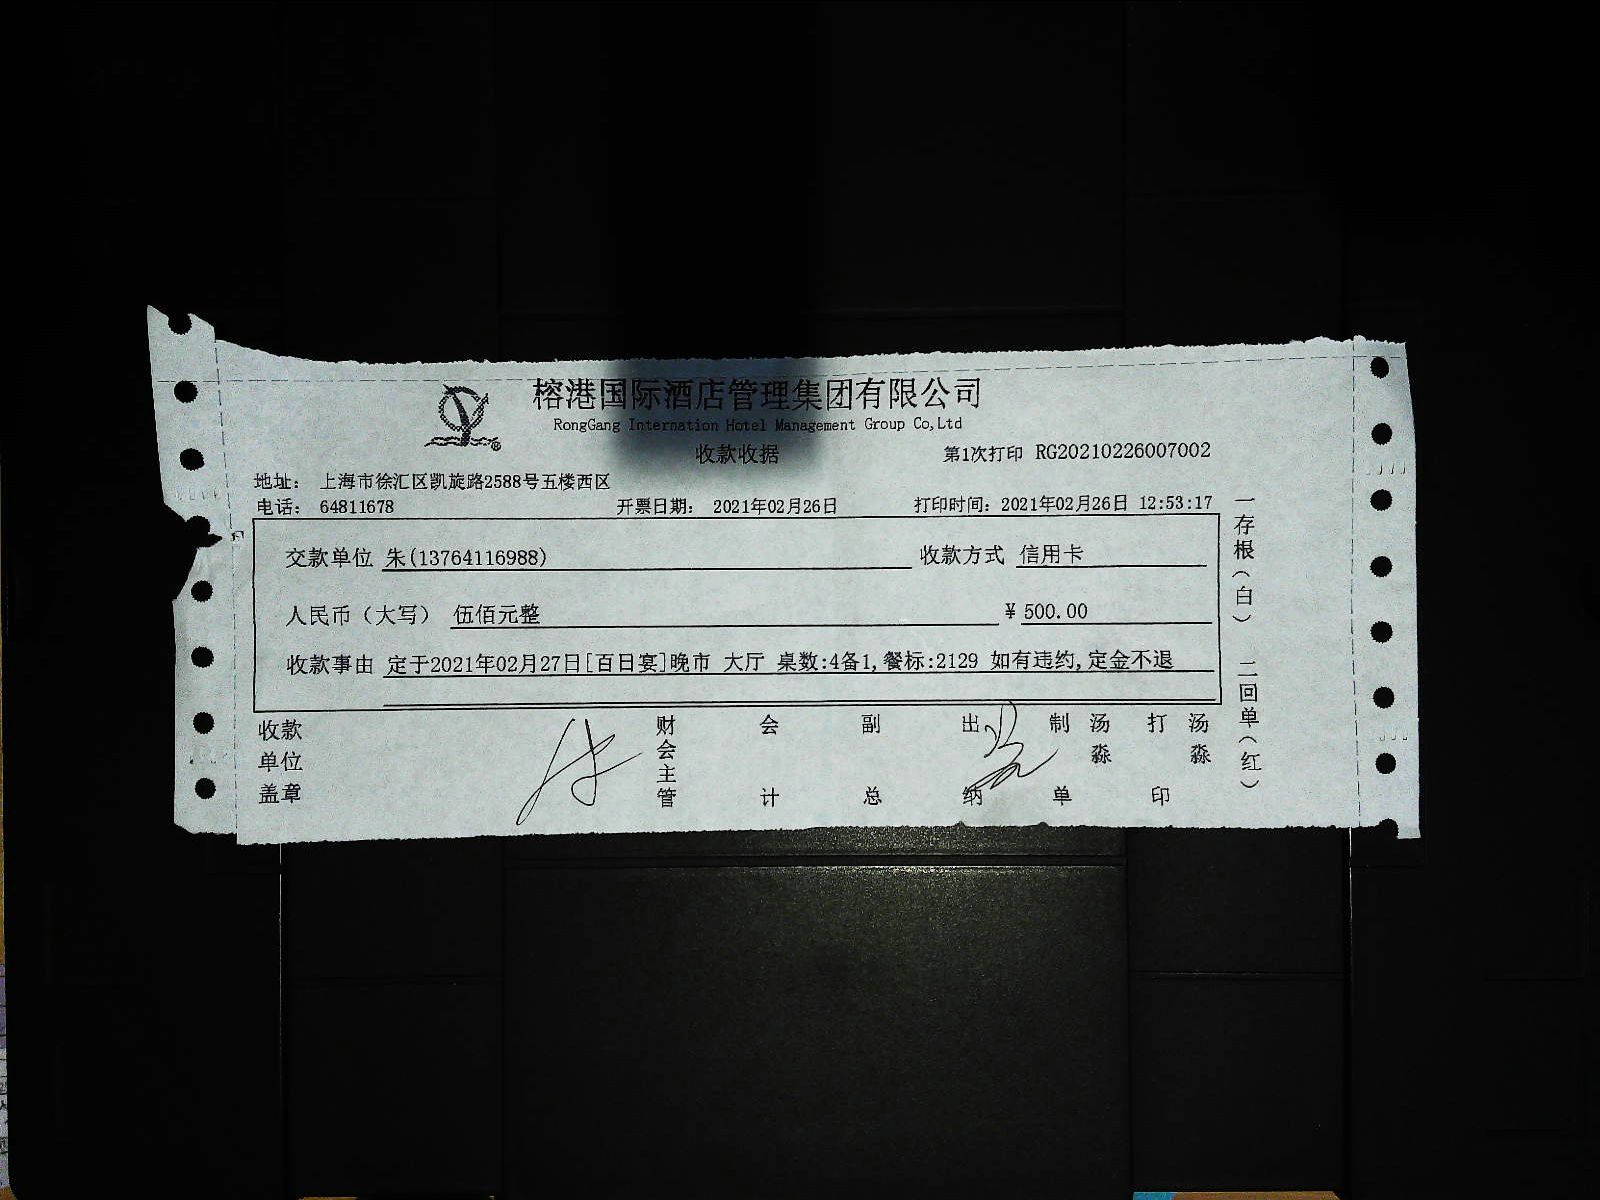 榕港国际酒店管理集团有限公司
RongGang Internation Hotel Management Group Co,Ltd
收款收据 第1次打印 RG20210226007002
地址： 上海市徐汇区凯旋路2588号五楼西区
电话： 64811678 开票日期： 2021年02月26日 打印时间：2021年02月26日 12:53:17
交款单位 朱(13764116988) 收款方式 信用卡
人民币（大写） 伍佰元整 ¥ 500.00
收款事由 定于2021年02月27日[百日宴]晚市 大厅 桌数:4备1,餐标:2129 如有违约,定金不退
收款单位盖章 财会主管 会计 副总 出纳 制单 汤淼 打印 汤淼
一存根（白） 二回单（红）